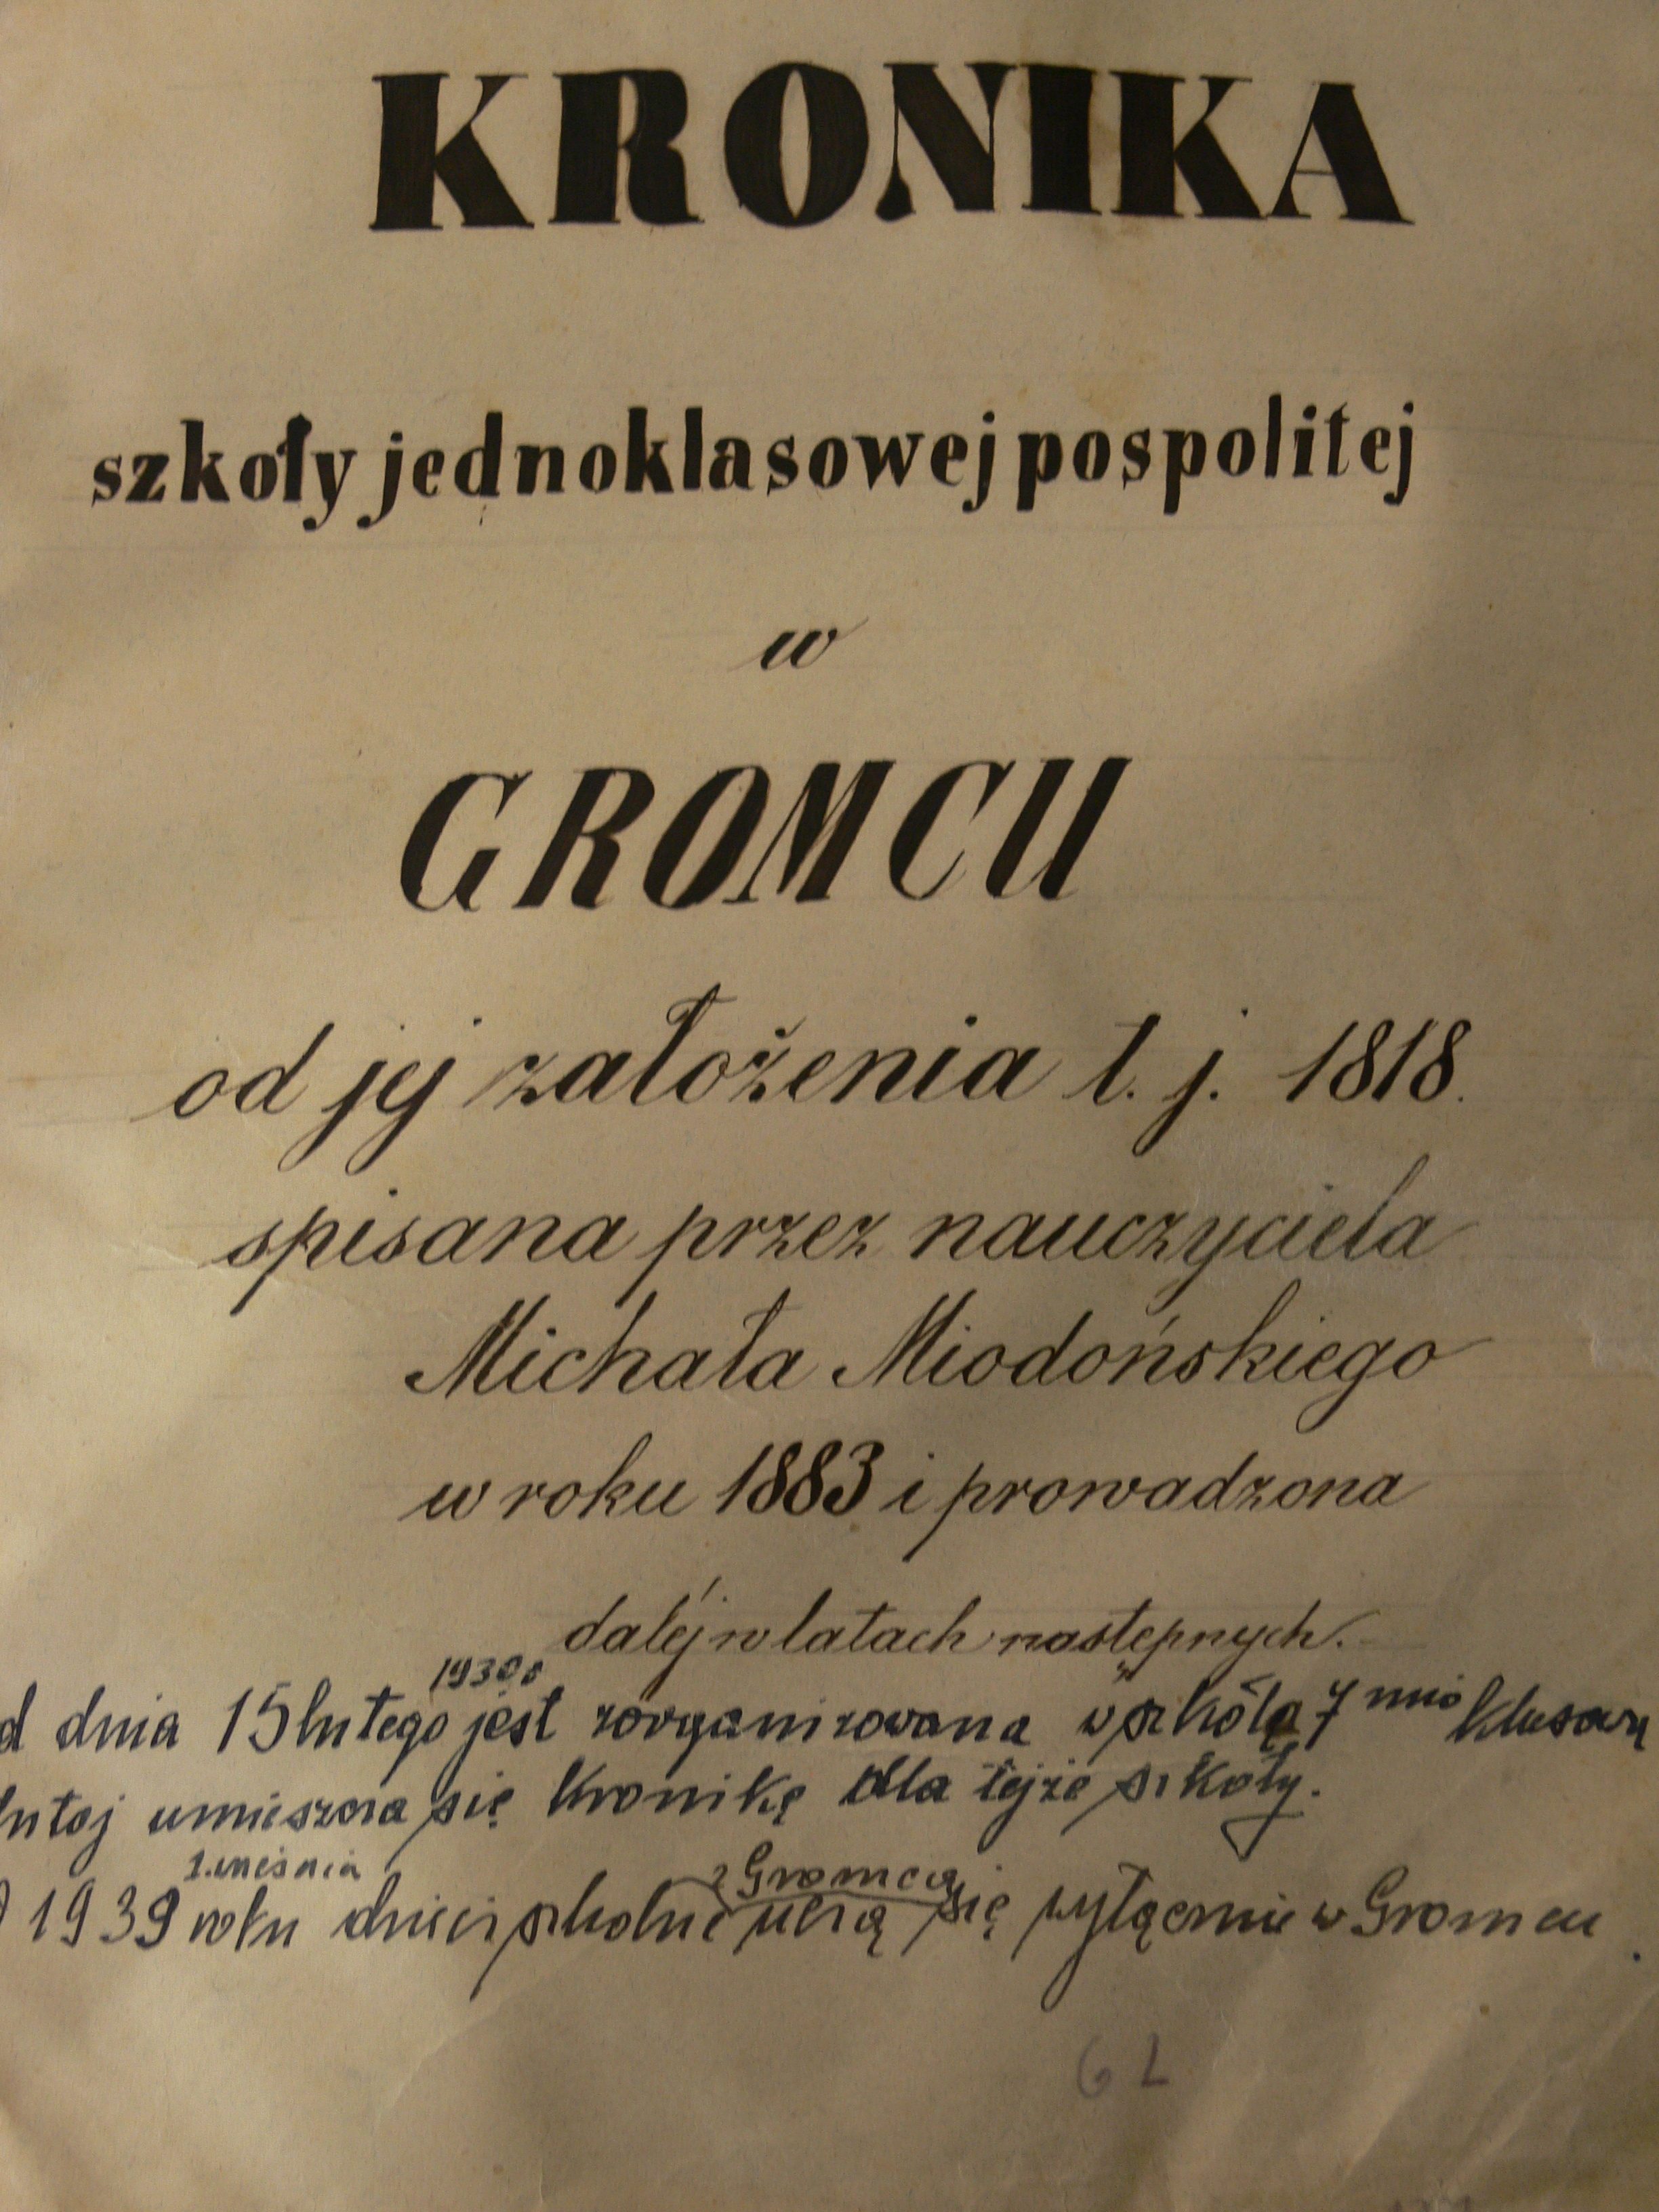 KRONIKA
szkoły jednoklasowej pospolitej
w
GROMCU
od jej założenia t. j. 1818.
spisana przez nauczyciela
Michała Miodońskiego
w roku 1883 i prowadzona
daléj w latach następnych.
1930r
d dnia 15 lutego jest zorganizowana w szkółą 7 mio klasową
tutaj umieszcza się kronikę dla tejże szkoły.
1. wrieśnia
1939 roku dzieci szkolne z Gromca uczą się wyłącznie w Gromcu.
6 L